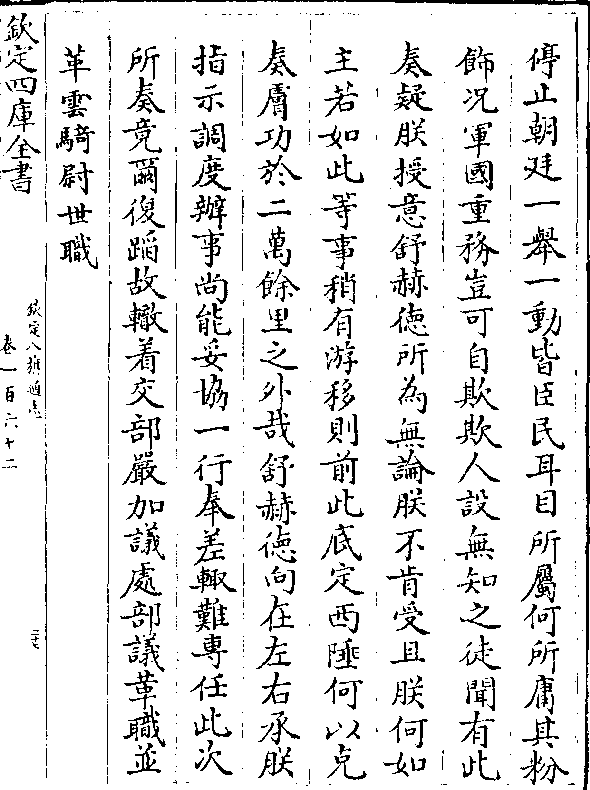 停止朝廷一舉一動皆臣民耳目所屬何所庸其粉
飾况軍國重務豈可自欺欺人設無知之徒聞有此
奏疑朕授意舒赫徳所為無論朕不肯受且朕何如
主若如此等事稍有游移則前此底定西陲何以克
奏膚功於二萬餘里之外哉舒赫徳向在左右承朕
指示調度辦事尚能妥協一行奉差輒難專任此次
所奏竟爾復蹈故轍着交部嚴加議處部議革職並
革雲騎尉世職
欽定四庫全書
欽定八旗通志
卷一百六十二